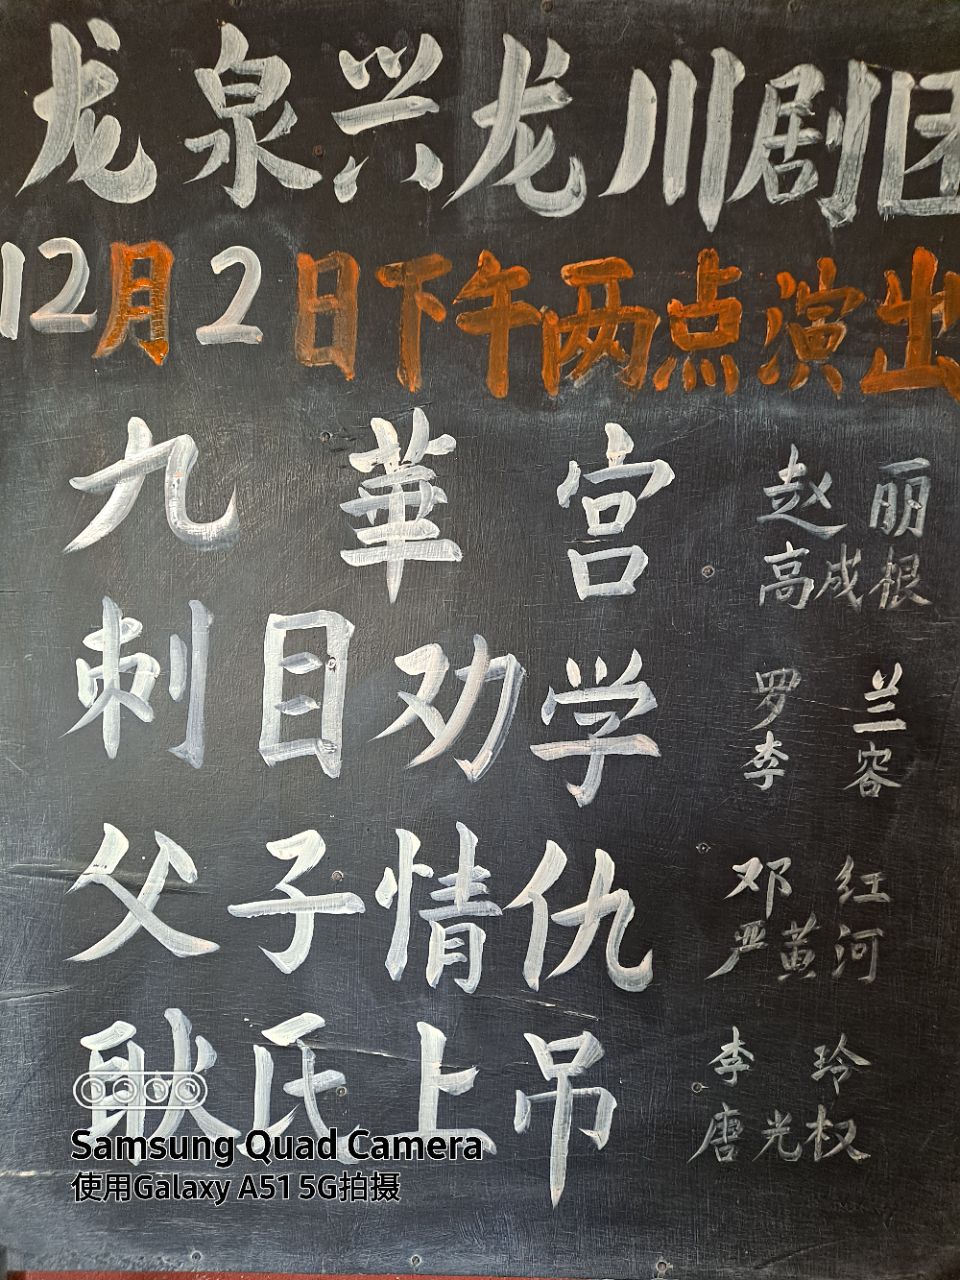 龙泉兴龙川剧团
12月2日下午两点演出
九華宫 赵丽
高成根
刺目劝学 罗兰
李容
父子情仇 邓红
严黄河
耿氏上吊 李玲
唐光权
Samsung Quad Camera
使用Galaxy A51 5G拍摄